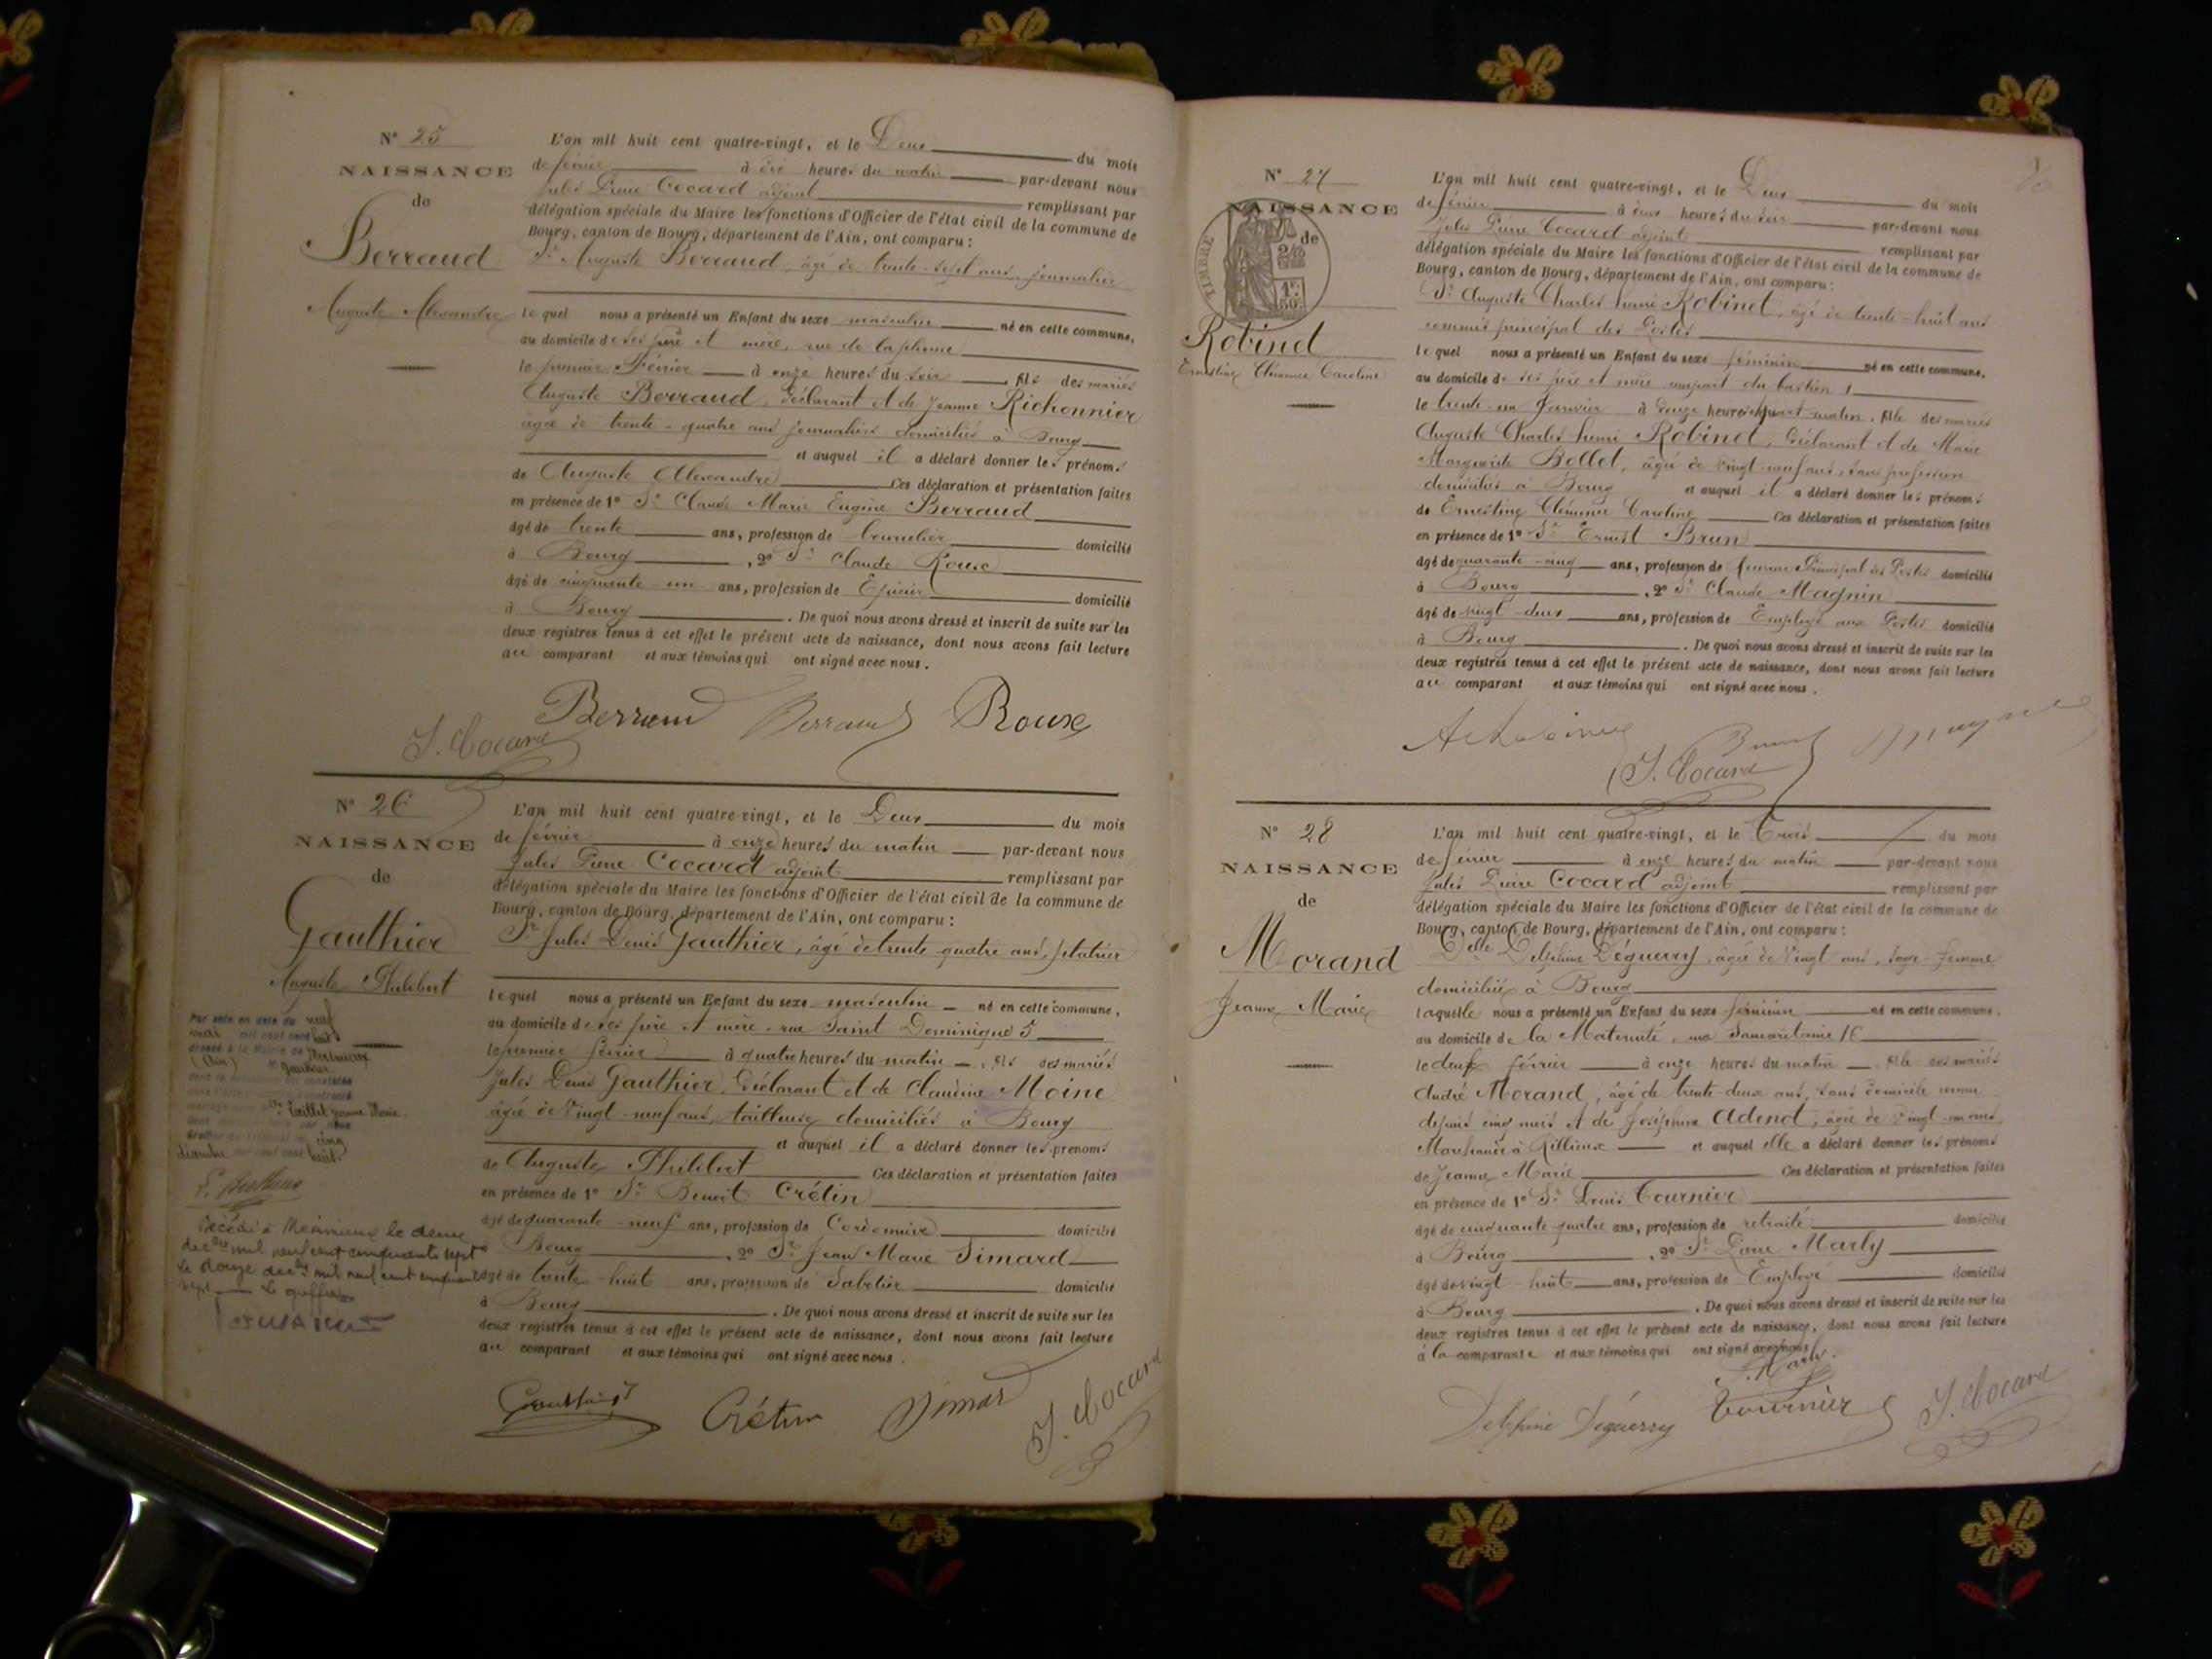 N° 25
NAISSANCE
de
Berraud
Auguste Alexandre
L'an mil huit cent quatre-vingt, et le Deux du mois
de février à dix heures du matin par-devant nous
Jules Pierre Cocard adjoint remplissant par
délégation spéciale du Maire les fonctions d'Officier de l'état civil de la commune de
Bourg, canton de Bourg, département de l'Ain, ont comparu :
Sr Auguste Berraud, âgé de trente-sept ans, journalier
lequel nous a présenté un Enfant du sexe masculin né en cette commune,
au domicile de ses père et mère, rue de
le premier Février à onze heures du soir fils des mariés
Auguste Berraud, déclarant et de Jeanne Richonnier
âgée de trente-quatre ans journaliers domiciliés à Bourg
et auquel il a déclaré donner les prénoms
de Auguste Alexandre Ces déclaration et présentation faites
en présence de 1° Sr Claude Marie Eugène Berraud
âgé de trente ans, profession de tonnelier domicilié
à Bourg, 2° Sr Claude Roux
âgé de cinquante-un ans, profession de Epicier domicilié
à Bourg. De quoi nous avons dressé et inscrit de suite sur les
deux registres tenus à cet effet le présent acte de naissance, dont nous avons fait lecture
au comparant et aux témoins qui ont signé avec nous.
Berraud Berraud Roux
J. Cocard
N° 26
NAISSANCE
de
Gauthier
Auguste Philibert
L'an mil huit cent quatre-vingt, et le Deux du mois
de février à onze heures du matin par-devant nous
Jules Pierre Cocard adjoint remplissant par
délégation spéciale du Maire les fonctions d'Officier de l'état civil de la commune de
Bourg, canton de Bourg, département de l'Ain, ont comparu :
Sr Jules Denis Gauthier, âgé de trente-quatre ans,
lequel nous a présenté un Enfant du sexe masculin né en cette commune,
au domicile de ses père et mère, rue Saint Dominique 5
le premier février à quatre heures du matin, fils des mariés
Jules Denis Gauthier, déclarant et de Claudine Moine
âgée de vingt-neuf ans, tailleuse domiciliés à Bourg
et auquel il a déclaré donner les prénoms
de Auguste Philibert Ces déclaration et présentation faites
en présence de 1° Sr Benoit Crétin
âgé de quarante-neuf ans, profession de Cordonnier domicilié
Bourg, 2° Sr Jean Marie Simard
âgé de trente-huit ans, profession de Sabotier domicilié
à Bourg. De quoi nous avons dressé et inscrit de suite sur les
deux registres tenus à cet effet le présent acte de naissance, dont nous avons fait lecture
au comparant et aux témoins qui ont signé avec nous.
Par acte en date du neuf
mai mil neuf cent huit
dressé à la Mairie de
(Ain)
Jeanne Marie
cinq
huit
Décédé à Meximieux le deux
décbre mil neuf cent cinquante sept
Le douze décbre mil neuf cent cinquante
sept Le greffier
Gauthier Crétin Simard J. Cocard
N° 27
NAISSANCE
de
TIMBRE
Robinet
Ernestine Clémence Caroline
L'an mil huit cent quatre-vingt, et le Deux du mois
de février à deux heures du soir par-devant nous
Jules Pierre Cocard adjoint remplissant par
délégation spéciale du Maire les fonctions d'Officier de l'état civil de la commune de
Bourg, canton de Bourg, département de l'Ain, ont comparu :
Sr Auguste Charles henri Robinet, âgé de trente-huit ans
commis principal des Postes
lequel nous a présenté un Enfant du sexe féminin né en cette commune,
au domicile de ses père et mère rempart du bastion 1
le trente-un Janvier à onze heures matin, fille des mariés
Auguste Charles henri Robinet, déclarant et de Marie
Marguerite Bollet, âgée de vingt-neuf ans, sans profession
domiciliés à Bourg et auquel il a déclaré donner les prénoms
de Ernestine Clémence Caroline Ces déclaration et présentation faites
en présence de 1° Sr Ernest Brun
âgé de quarante-cinq ans, profession de Principal des Postes domicilié
à Bourg, 2° Sr Claude Magnin
âgé de vingt-deux ans, profession de Employé aux Postes domicilié
à Bourg. De quoi nous avons dressé et inscrit de suite sur les
deux registres tenus à cet effet le présent acte de naissance, dont nous avons fait lecture
au comparant et aux témoins qui ont signé avec nous.
Brun
J. Cocard
N° 28
NAISSANCE
de
Morand
Jeanne Marie
L'an mil huit cent quatre-vingt, et le Trois du mois
de février à onze heures du matin par-devant nous
Jules Pierre Cocard adjoint remplissant par
délégation spéciale du Maire les fonctions d'Officier de l'état civil de la commune de
Bourg, canton de Bourg, département de l'Ain, ont comparu :
Delle Delphine Déguerry, âgée de vingt ans, sage-femme
domiciliée à Bourg
laquelle nous a présenté un Enfant du sexe féminin né en cette commune,
au domicile de la Maternité, rue Samaritaine 16
le deux février à onze heures du matin, fille des mariés
André Morand, âgé de trente-deux ans, sans domicile connu
depuis cinq mois et de Joséphine Adenot, âgée de vingt-un ans
Marchande à Rillieux et auquel elle a déclaré donner les prénoms
de Jeanne Marie Ces déclaration et présentation faites
en présence de 1° Sr Louis Tournier
âgé de cinquante-quatre ans, profession de retraité domicilié
à Bourg, 2° Sr Pierre Marly
âgé de vingt-huit ans, profession de Employé domicilié
à Bourg. De quoi nous avons dressé et inscrit de suite sur les
deux registres tenus à cet effet le présent acte de naissance, dont nous avons fait lecture
à la comparante et aux témoins qui ont signé avec nous.
Delphine Déguerry Tournier J. Cocard